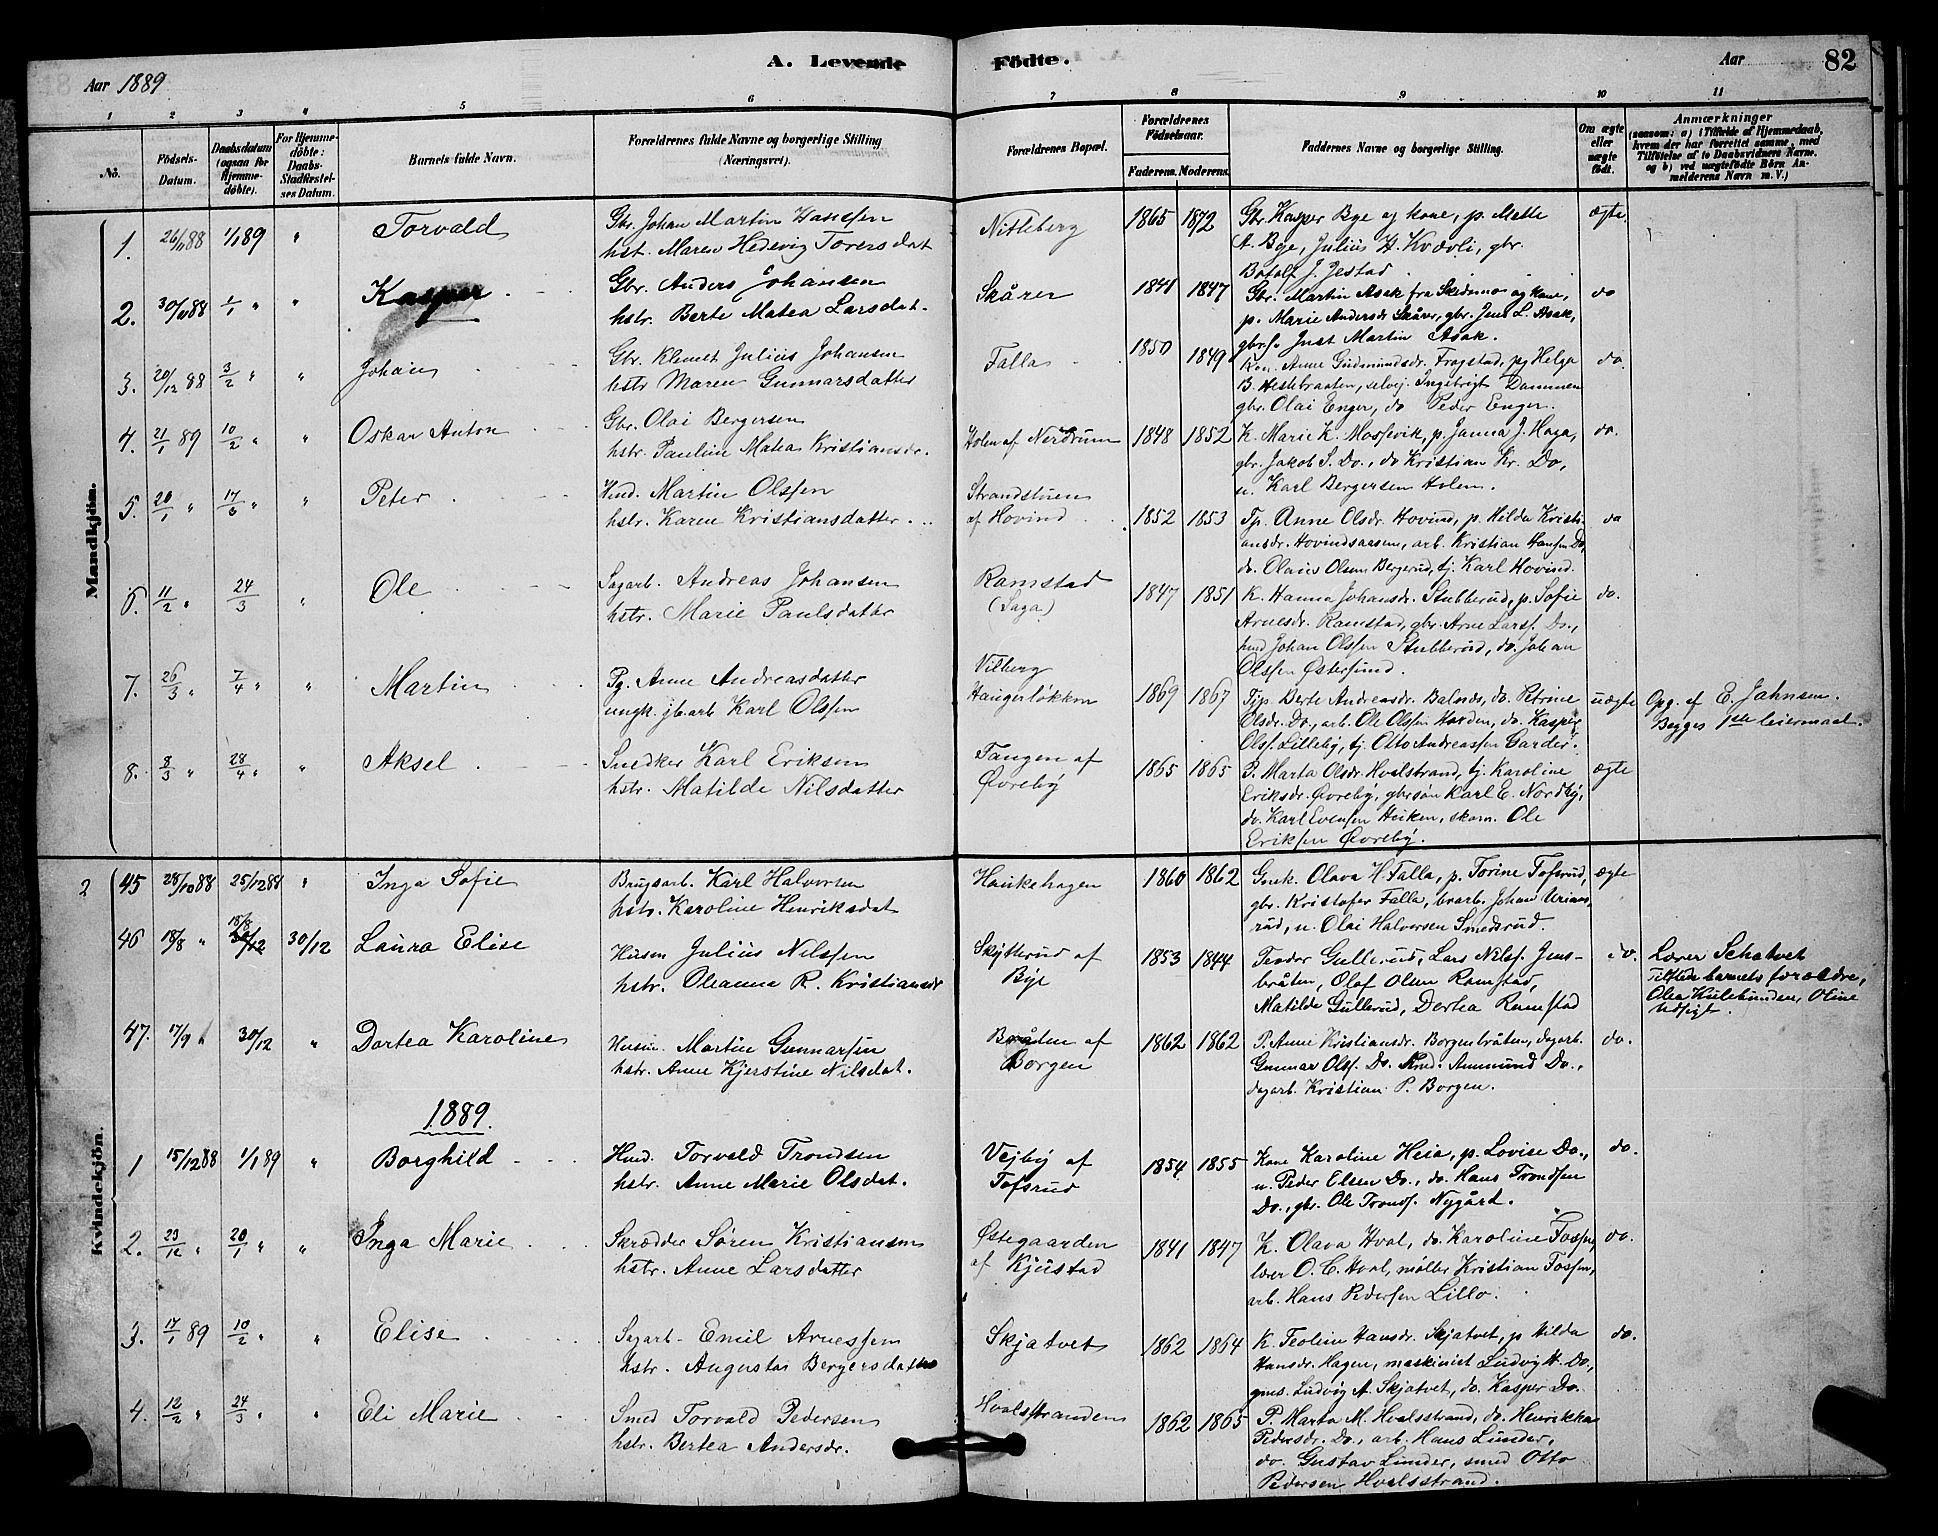 Aar 1889
A. Levende Födte.
Aar
82
1 2 3 4 5 6 7 8 9 10 11
No.
Födsels-Datum.
Daabsdatum (ogsaa for Hjemmedöbte).
For Hjemmedöbte: Daabs-Stadfæstelses Datum.
Barnets fulde Navn.
Forældrenes fulde Navne og borgerlige Stilling (Næringsvei).
Forældrenes Bopæl.
Forældrenes Födselsaar.
Faderens. Moderens.
Faddernes Navne og borgerlige Stilling.
Om ægte eller uægte födt.
Anmærkninger
(saasom: a) i Tilfælde af Hjemmedaab, hvem der har forrettet samme, med Tilföielse af to Daabsvidners Navne, og b) ved uægtefödte Börn Anmelderens Navn m. V.)
Mandkjön.
1. 26/11 88 1/1 89 " Torvald
Gbr. Johan Martin Hanssen
hst. Maren Hedevig Torersdat
Nitteberg 1865 1872
Gbr. Kasper Bye og kone, p. Mette
A. Bye, Julius H. Kvævli, gbr.
Botolf J. Jestad.
ægte
2. 30/11 88 1/1 " " Kasper
Gbr. Anders Johansen
hstr. Berte Matea Larsdat.
Skårer 1841 1847
Gbr. Martin Asak fra Skedsmo og kone,
p. Marie Andersdr Skårer, gbr. Jens L. Asak,
gbrs. Just Martin Asak.
do
3. 20/12 88 3/2 " " Johan
Gbr. Klemet Julius Johansen
hstr Maren Gunnarsdatter
Falla 1850 1849
Kon. Anne Gudmundsdr. Frogstad, pg Helga
B. Hestebraaten, selvej. Ingebrigt Dammen
gbr. Olai Enger, do Peder Enger.
do.
4. 21/1 89 10/2 " " Oskar Anton
Gbr. Olai Bergersen
hstr. Pauline Matea Kristiansdr.
Holen af Nerdrum 1848 1852
K. Marie K. Mossevik, p. Janna J. Haga,
gbr. Jakob S. Do., do Kristian Kr. Do,
u. Karl Bergersen Holen.
do.
5. 20/1 " 17/3 " " Peter
Hmd. Martin Olssen
hstr. Karen Kristiansdatter
Strandstuen
af Hovind 1852 1853
Tjp. Anne Olsdr. Hovind, p. Hilda Kristi-
ansdr. Hovindsaasen, arb. Kristian Hansen Do,
do. Olaus Olsen Bergerud, tj. Karl Hovind.
do
6. 11/2 " 24/3 " Ole
Sagarb. Andreas Johansen
hstr. Marie Paulsdatter
Ramstad
(Saga) 1847 1851
K. Hanna Johansdr. Stubberud, p. Sofie
Arnesdr. Ramstad, gbr. Arne Larss. Do.,
hmd Johan Olssen Stubberud, do. Johan
Olssen Østersund.
do.
7. 26/3 " 7/4 " " Martin
Pg. Anne Andreasdatter
ungk. jb.arb Karl Olssen
Vilberg
Haugerløkken 1869 1867
Tjp. Berte Andreasdr. Balnes, do. Petrine
Olsdr. Do., arb. Ole Olssen Horden, do. Kasper
Olss. Lilleby, tj. Otto Andreassen Garder.
uægte
Opg. af E. Jahnsen.
Begges 1ste leiermaal.
8. 8/3 " 28/4 " " Aksel
Snedker Karl Eriksen
hstr. Matilde Nilsdatter
Tangen af
Øvreby 1865 1865
P. Marta Olsdr. Hvalstrand, tj. Karoline
Eriksdr. Øvreby, gbrsøn Karl E. Nordby,
do. Karl Evensen Heiken, skom. Ole
Eriksen Øvreby.
ægte
Kvindekjön.
2
45 28/10 88 25/12 88 " Inga Sofie
Brugsarb. Karl Halvorsen
hstr. Karoline Henriksdat
Haukehagen 1860 1862
Gmk. Olava H. Falla, p. Torine Tofsrud,
gbr. Kristofer Falla, brarb. Johan Urians-
rud, u. Olai Halversen Smedsrud.
ægte
46 18/8 " 18/8 30/12 30/12 Laura Elise
Husm Julius Nilssen
hstr. Oleanna R. Kristiansdr
Skytterud af
Bye 1853 1844
Teodor Gullerud, Lars Nilss. Jens-
bråten, Olaf Olsen Ramstad,
Matilde Gullerud, Dortea Ramstad
do.
Lærer Schatvet
Tilstede barnets forældre,
Olea Kulehunden, Oline
Udsigt.
47. 17/9 " 30/12 " Dortea Karoline
Husm. Martin Gunnarsen
hstr. Anne Kjerstine Nilsdat.
Bråten af
Borgen 1862 1862
P. Anne Kristiansdr. Borgenbråten, dagarb.
Gunnar Olss. Do. Hmd. Ammund Do.,
dagarb. Kristian P. Borgen.
do.
1889.
1 15/12 88 1/1 89 " Borghild
Hmd. Torvald Trondsen
hstr. Anne Marie Olsdat.
Vejby af
Tofsrud 1854 1855
Kone Karoline Heia, p. Lovise Do.,
u. Peder Elsen Do., do. Hans Trondsen
Do., gbr. Ole Tronds. Nygård.
do.
2. 23/12 " 20/1 " " Inga Marie
Skrædder Søren Kristiansen
hstr. Anne Larsdatter
Østegaarden
af Kjustad 1841 1847
K. Olava Hval, do. Karoline Fossen,
lærer O. C. Hval, møller Kristian Fossen,
arb. Hans Pedersen Lillo.
do.
3. 17/1 89 10/2 " " Elise
Sagarb. Emil Arnessen
hstr. Augusta Bergersdatter
Skjatvet 1862 1864
K. Teoline Hansdr. Skjatvet, p Hilda
Hansdr. Hagen, maskinist Ludvig H. Do.,
gms. Ludvig A. Skjatvet, do. Kasper Do.
do.
4. 12/2 " 24/3 " " Eli Marie
Smed Torvald Pedersen
hstr. Bertea Andersdr.
Hvalsstranden 1862 1865
P. Marta M. Hvalsstrand, do. Henrikka
Pedersdr. Do., arb. Hans Lunder,
do. Gustav Lunder, smed Otto
Pedersen Hvalsstrand.